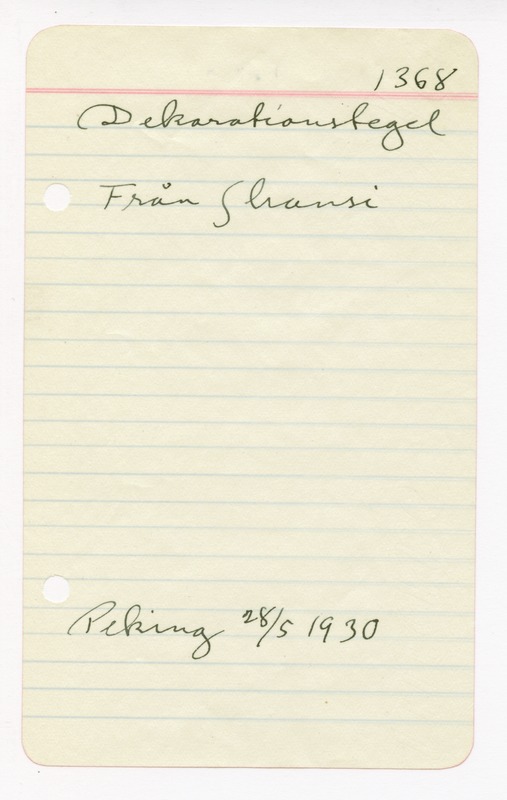 1368
Dekorationstegel
Från Shansi
Peking 28/5 1930